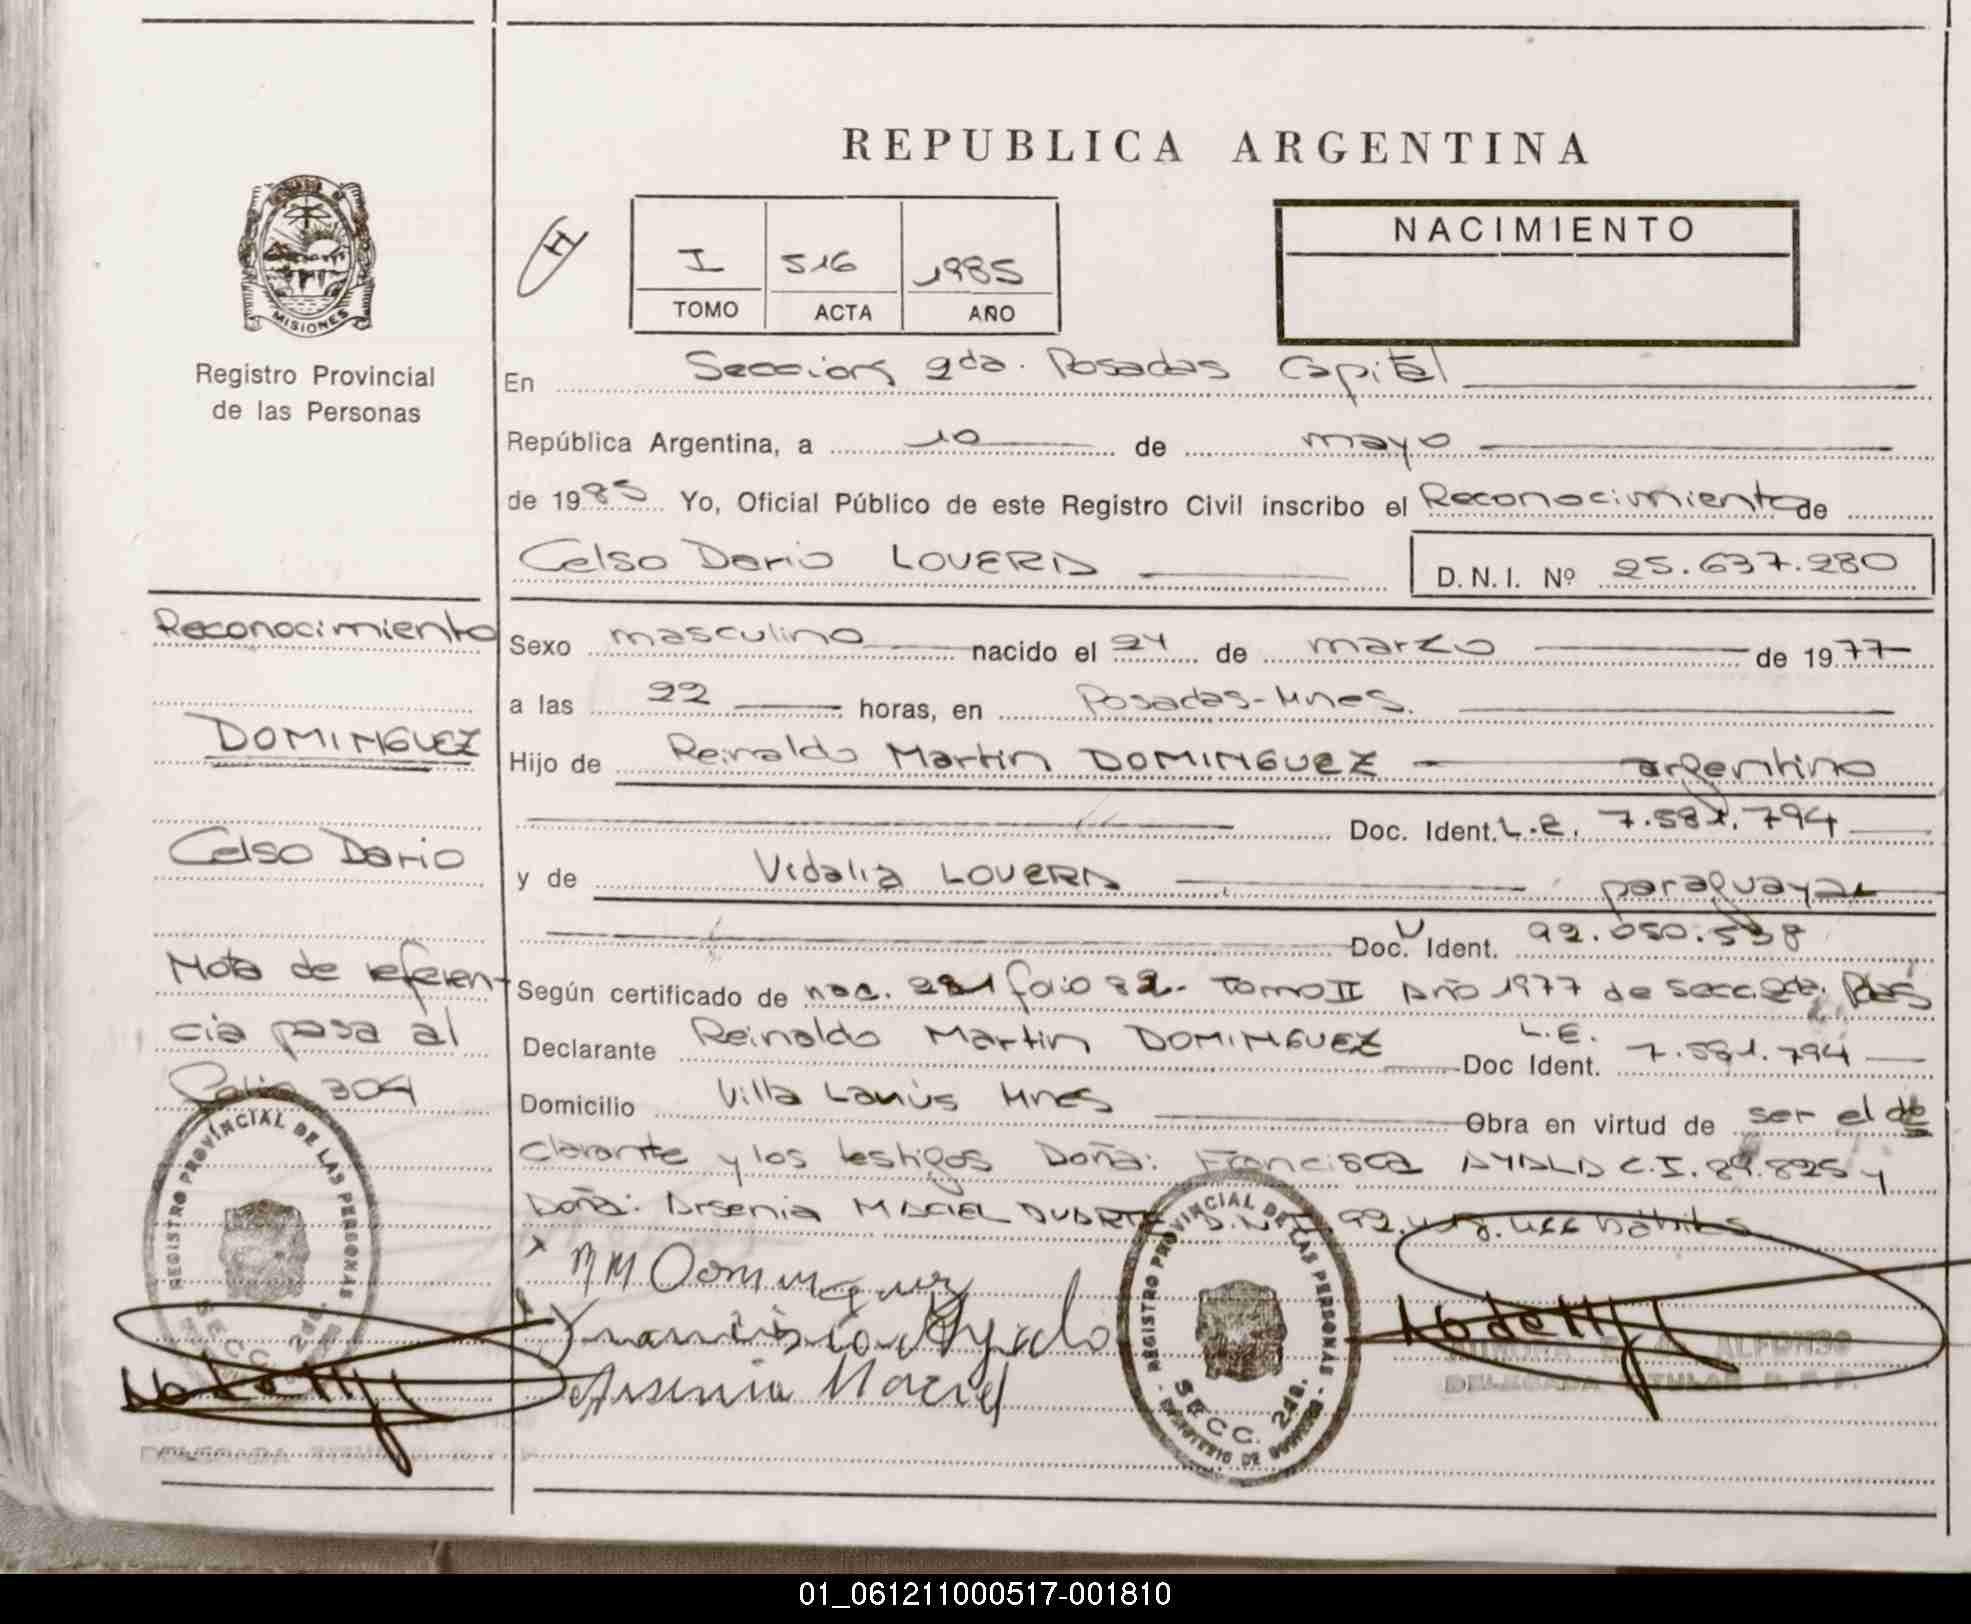 REPUBLICA ARGENTINA
MISIONES
Registro Provincial
de las Personas
H
I 516 1985
TOMO ACTA AÑO
NACIMIENTO
En Seccion 2da. Posadas Capital
República Argentina, a 10 de mayo
de 1985 Yo, Oficial Público de este Registro Civil inscribo el Reconocimiento de
Celso Dario LOVERA D.N.I. Nº 25.637.280
Sexo masculino nacido el 24 de marzo de 1977
a las 22 horas, en Posadas-Mnes.
Hijo de Reinaldo Martin DOMINGUEZ argentino
Doc. Ident. L.E. 7.581.794
y de Vidalia LOVERA paraguaya
Doc. Ident. 92.050.538
Según certificado de nac. 281 folio 82. Tomo II Año 1977 de Secc. 2da. Pdas
Declarante Reinaldo Martin DOMINGUEZ L.E. Doc Ident. 7.581.794
Domicilio Villa Lanús Mnes Obra en virtud de ser el de
clarante y los testigos Doña: Francisca AYALA C.I. 89.825 y
Doña: Arsenia MACIEL DUARTE D.N.I. 92. hábiles
RM Dominguez
Francisca Ayala
Arsenia Maciel
REGISTRO PROVINCIAL DE LAS PERSONAS
SECC. 2da.
MINISTERIO DE GOBIERNO
ALFONSO
DELEGADA TITULAR R. P. P.
Reconocimiento
DOMINGUEZ
Celso Dario
Nota de referen
cia pasa al
Folio 304
REGISTRO PROVINCIAL DE LAS PERSONAS
SECC. 2da.
DELEGADA TITULAR
01_061211000517-001810